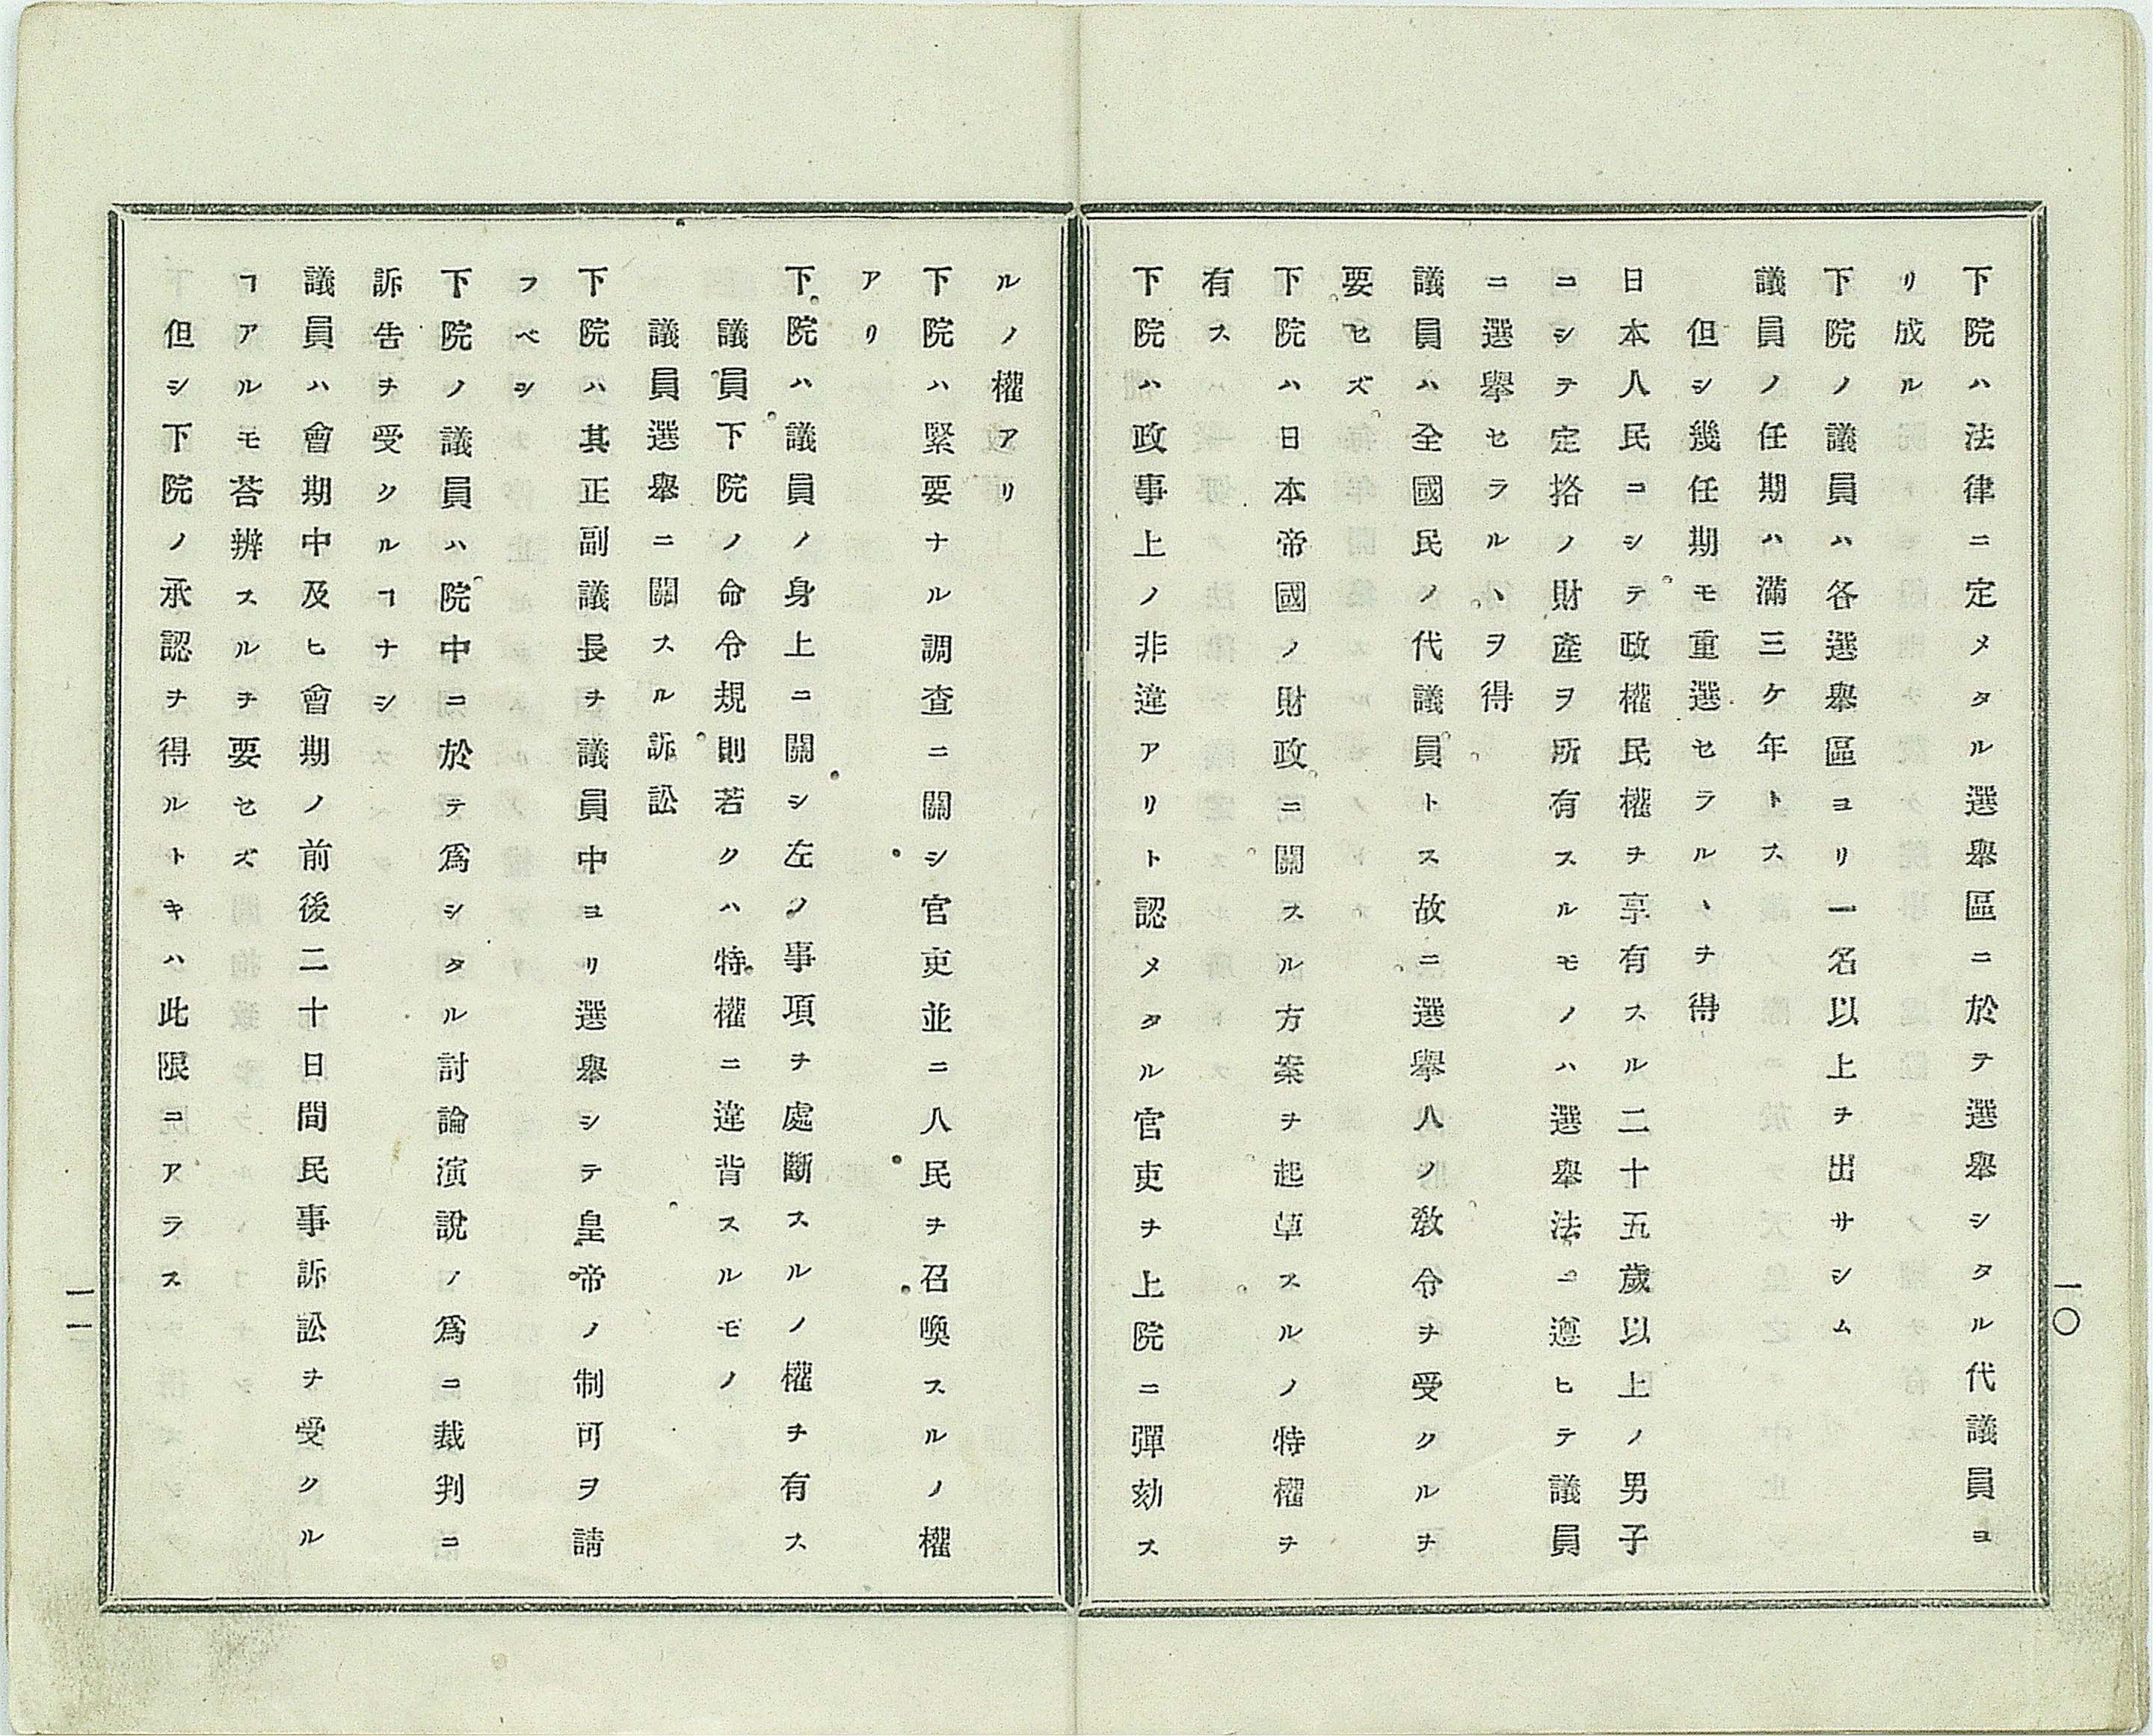 下院ハ法律ニ定メタル選擧區ニ於テ選擧シタル代議員ヨ
リ成ル
下院ノ議員ハ各選擧區ヨリ一名以上ヲ出サシム
議員ノ任期ハ滿三ケ年トス
但シ幾任期モ重選セラルヽヲ得
日本人民ニシテ政權民權ヲ享有スル二十五歲以上ノ男子
ニシテ定挌ノ財產ヲ所有スルモノハ選擧法ニ遵ヒテ議員
ニ選擧セラルヽヲ得
議員ハ全國民ノ代議員トス故ニ選擧人ノ敎令ヲ受クルヲ
要セズ
下院ハ日本帝國ノ財政ニ關スル方案ヲ起草スルノ特權ヲ
有ス
下院ハ政事上ノ非違アリト認メタル官吏ヲ上院ニ彈劾ス
一〇
ルノ權アリ
下院ハ緊要ナル調查ニ關シ官吏並ニ人民ヲ召喚スルノ權
アリ
下院ハ議員ノ身上ニ關シ左ノ事項ヲ處斷スルノ權ヲ有ス
議員下院ノ命令規則若クハ特權ニ違背スルモノ
議員選擧ニ關スル訴訟
下院ハ其正副議長ヲ議員中ヨリ選擧シテ皇帝ノ制可ヲ請
フベシ
下院ノ議員ハ院中ニ於テ爲シタル討論演說ノ爲ニ裁判ニ
訴告ヲ受クルヿナシ
議員ハ會期中及ヒ會期ノ前後二十日間民事訴訟ヲ受クル
ヿアルモ荅辨スルヲ要セズ
但シ下院ノ承認ヲ得ルトキハ此限ニアラス
一一